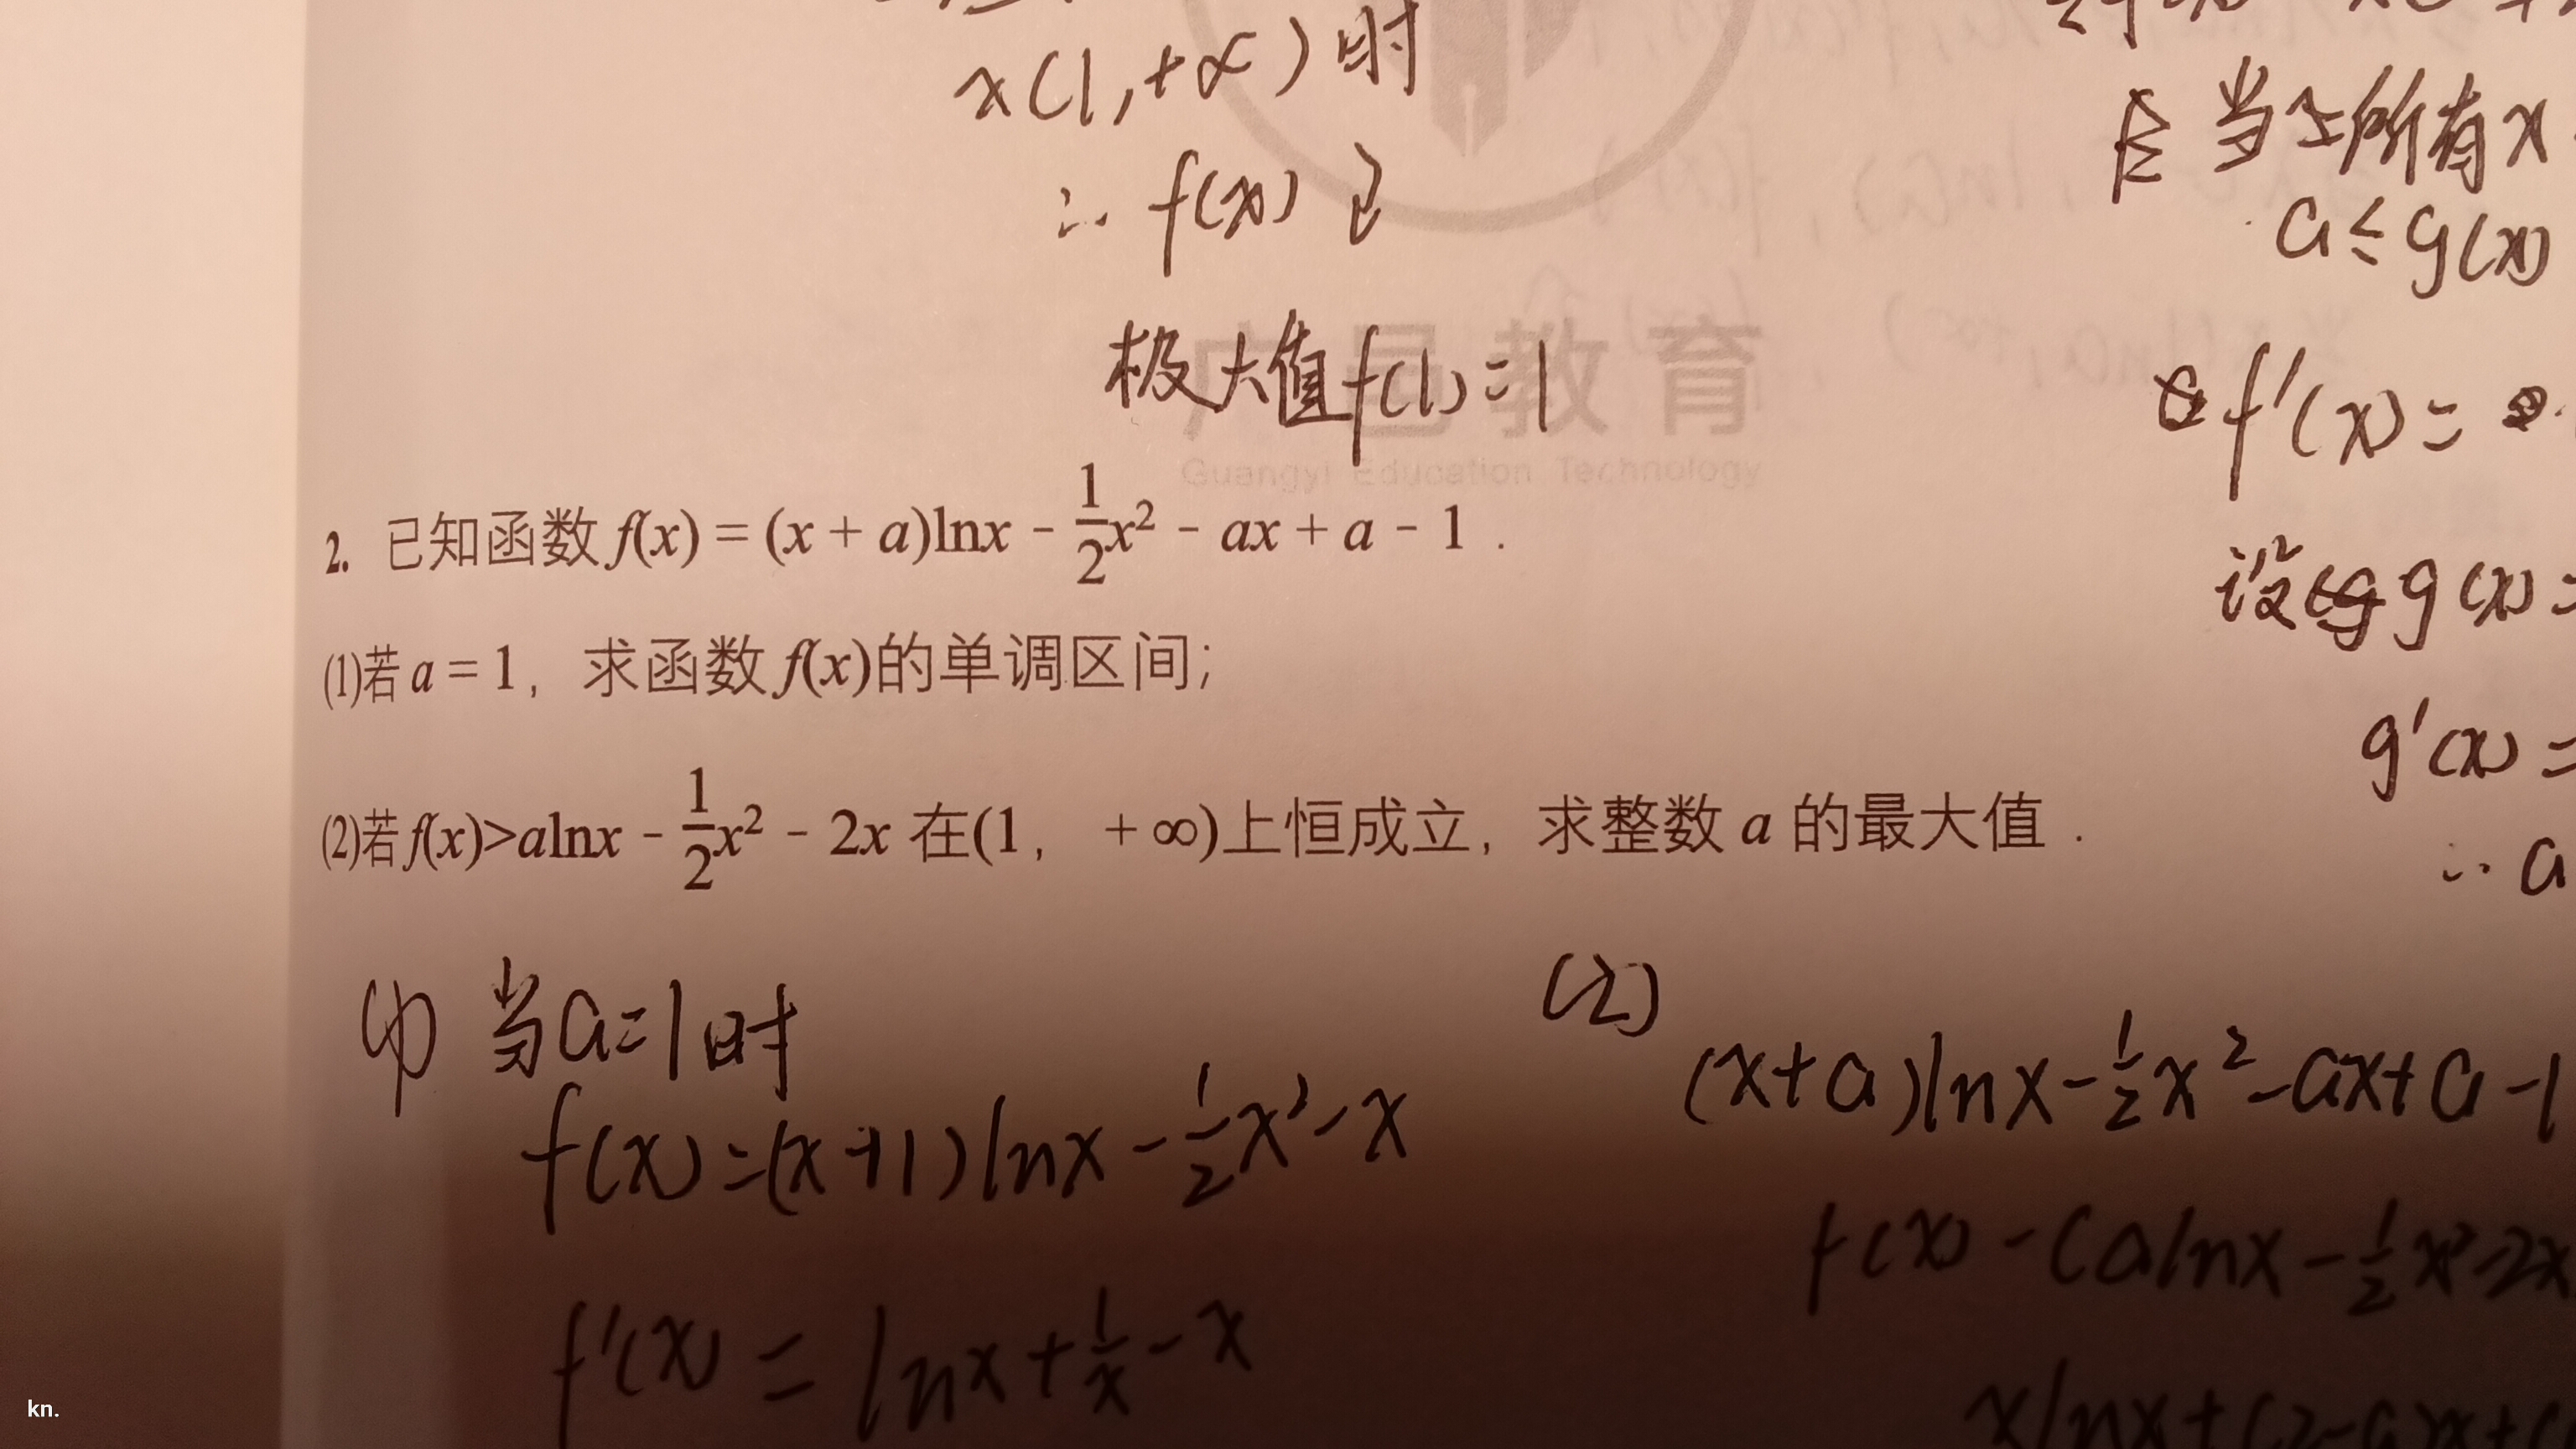 x(1,+∝)时
∴ f(x)
极大值f(1)=1
广邑教育
Guangyi Education Technology
2. 已知函数 f(x) = (x + a)lnx - \frac{1}{2}x² - ax + a - 1 .
(1)若 a = 1，求函数 f(x)的单调区间；
(2)若 f(x)>alnx - \frac{1}{2}x² - 2x 在(1，+∞)上恒成立，求整数 a 的最大值 .
(1) 当a=1时
f(x)=(x+1)lnx-\frac{1}{2}x²-x
f'(x) = lnx+\frac{1}{x}-x
(2)
(x+a)lnx-\frac{1}{2}x²-ax+a-1
f(x)-(alnx-\frac{1}{2}x²-2x
xlnx+(2-a)x+
所有x
a≤g(x)
f'(x)=
设 g(x)=
g'(x)=
∴ a
kn.